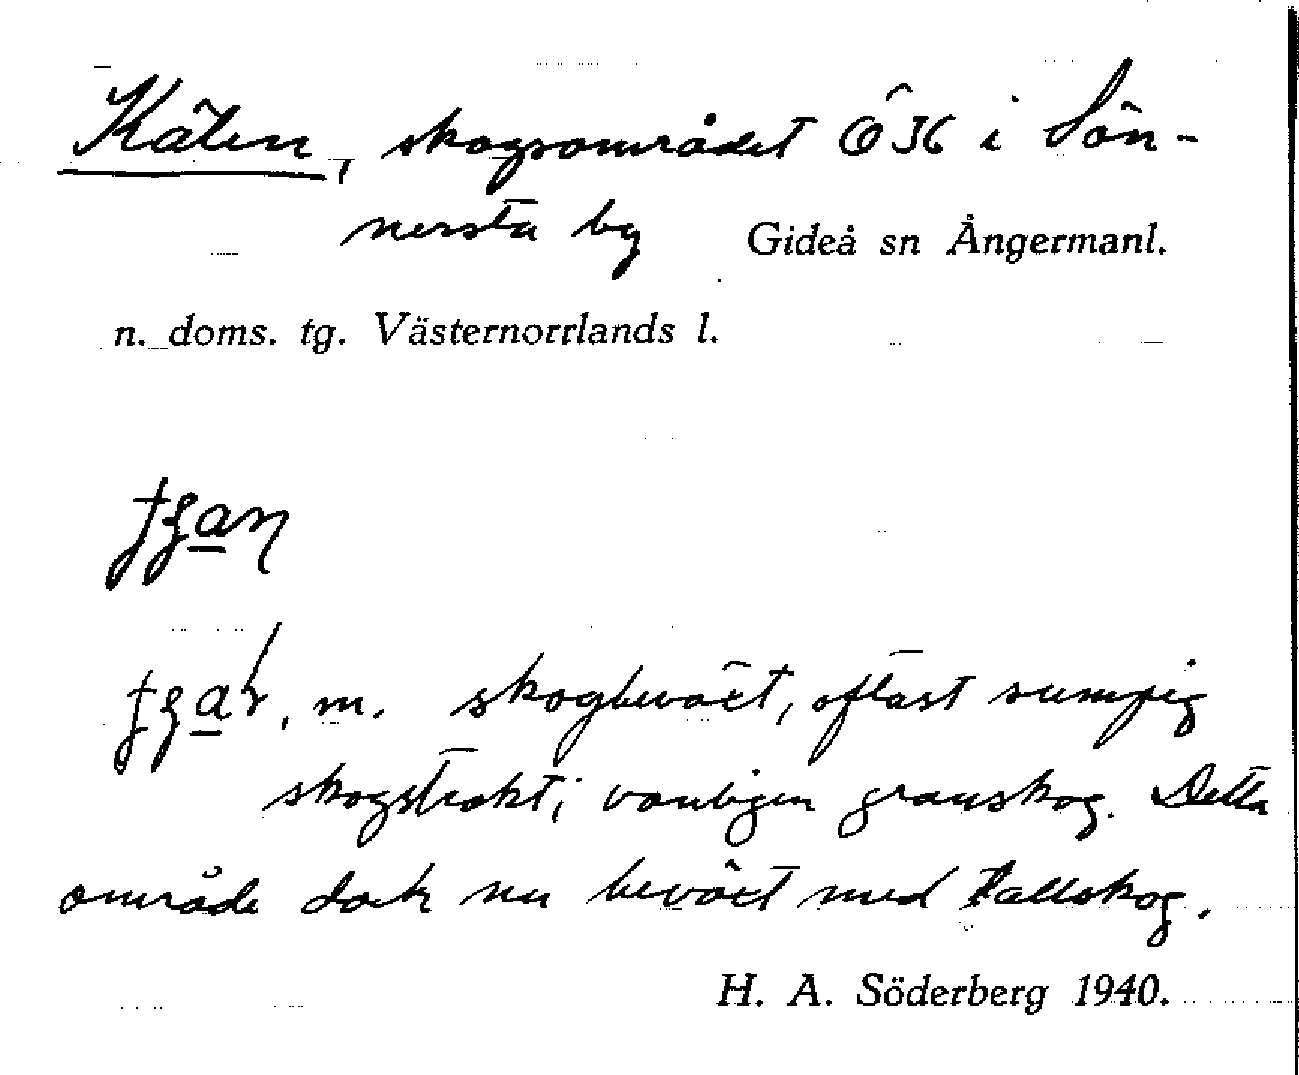 Kälen, skogsområdet Ö36 i Sön-
nersta by Gideå sn Ångermanl.
n. doms. tg. Västernorrlands l.
, m. skogbeväxt, oftast sumpig
skogstrakt; vanligen granskog. Detta
område dock nu beväxt med tallskog.
H. A. Söderberg 1940.